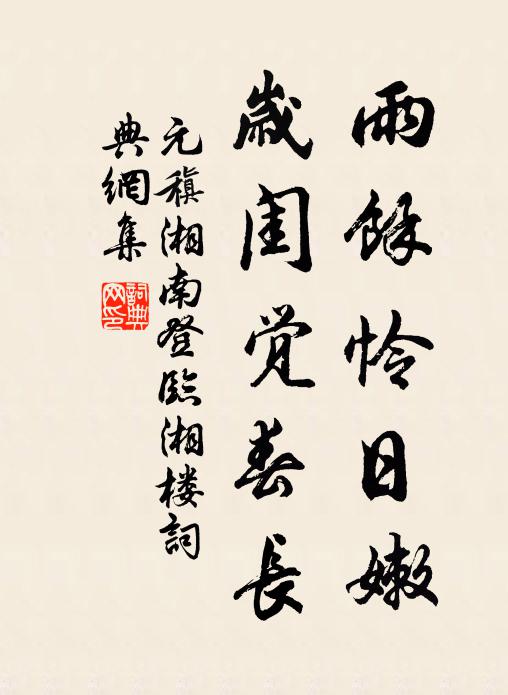 雨餘怜日嫩
歲闰觉春長
元稹湘南登臨湘楼詞
典網集
詞典网印